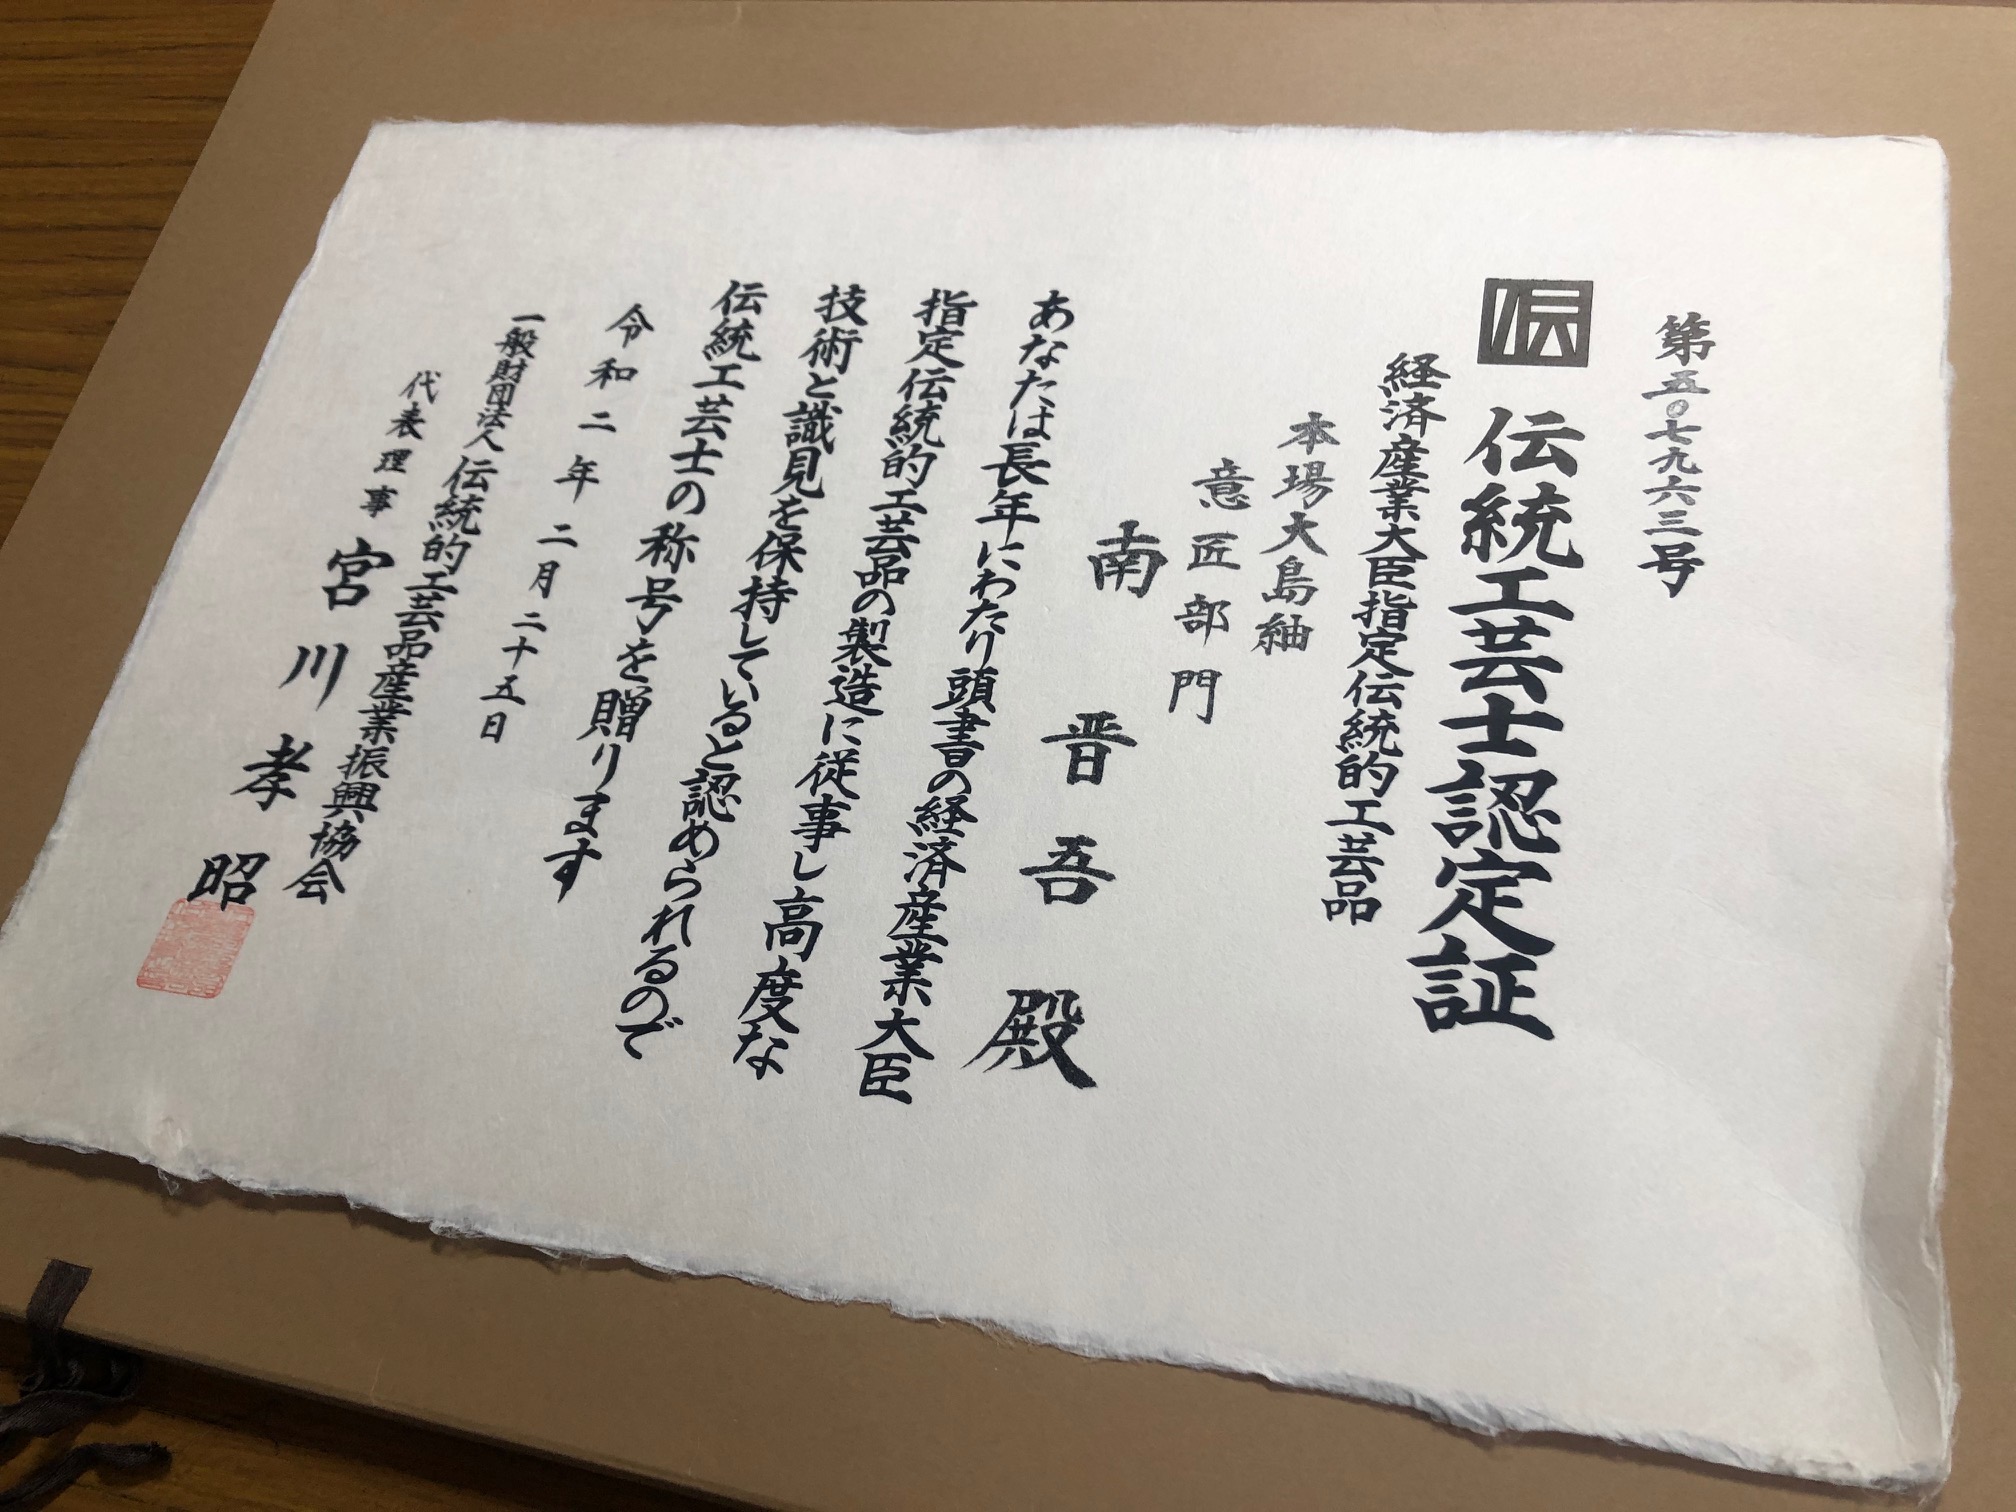 第五〇七九六三号
伝 伝統工芸士認定証
経済産業大臣指定伝統的工芸品
本場大島紬
意匠部門
南晋吾殿
あなたは長年にわたり頭書の経済産業大臣
指定伝統的工芸品の製造に従事し高度な
技術と識見を保持していると認められるので
伝統工芸士の称号を贈ります
令和二年二月二十五日
一般財団法人伝統的工芸品産業振興協会
代表理事 宮川孝昭